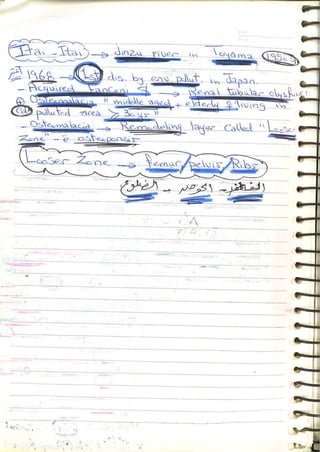 Itai-Itai → dinzu river in Toyama 1950s
1968 → 1st dis. by env. pollut. in Japan.
- Acquired Fanconi → Renal tubular dysfunct
⊕ Osteomalacia "middle aged + elderly ♀ living in
Cd polluted area ≥ 30yr"
- Osteomalacia → Remodeling layer called "Looser
Zone" - ē osteoporosis
Looser Zone → femur/pelvis/Ribs
الحوض - الضلوع